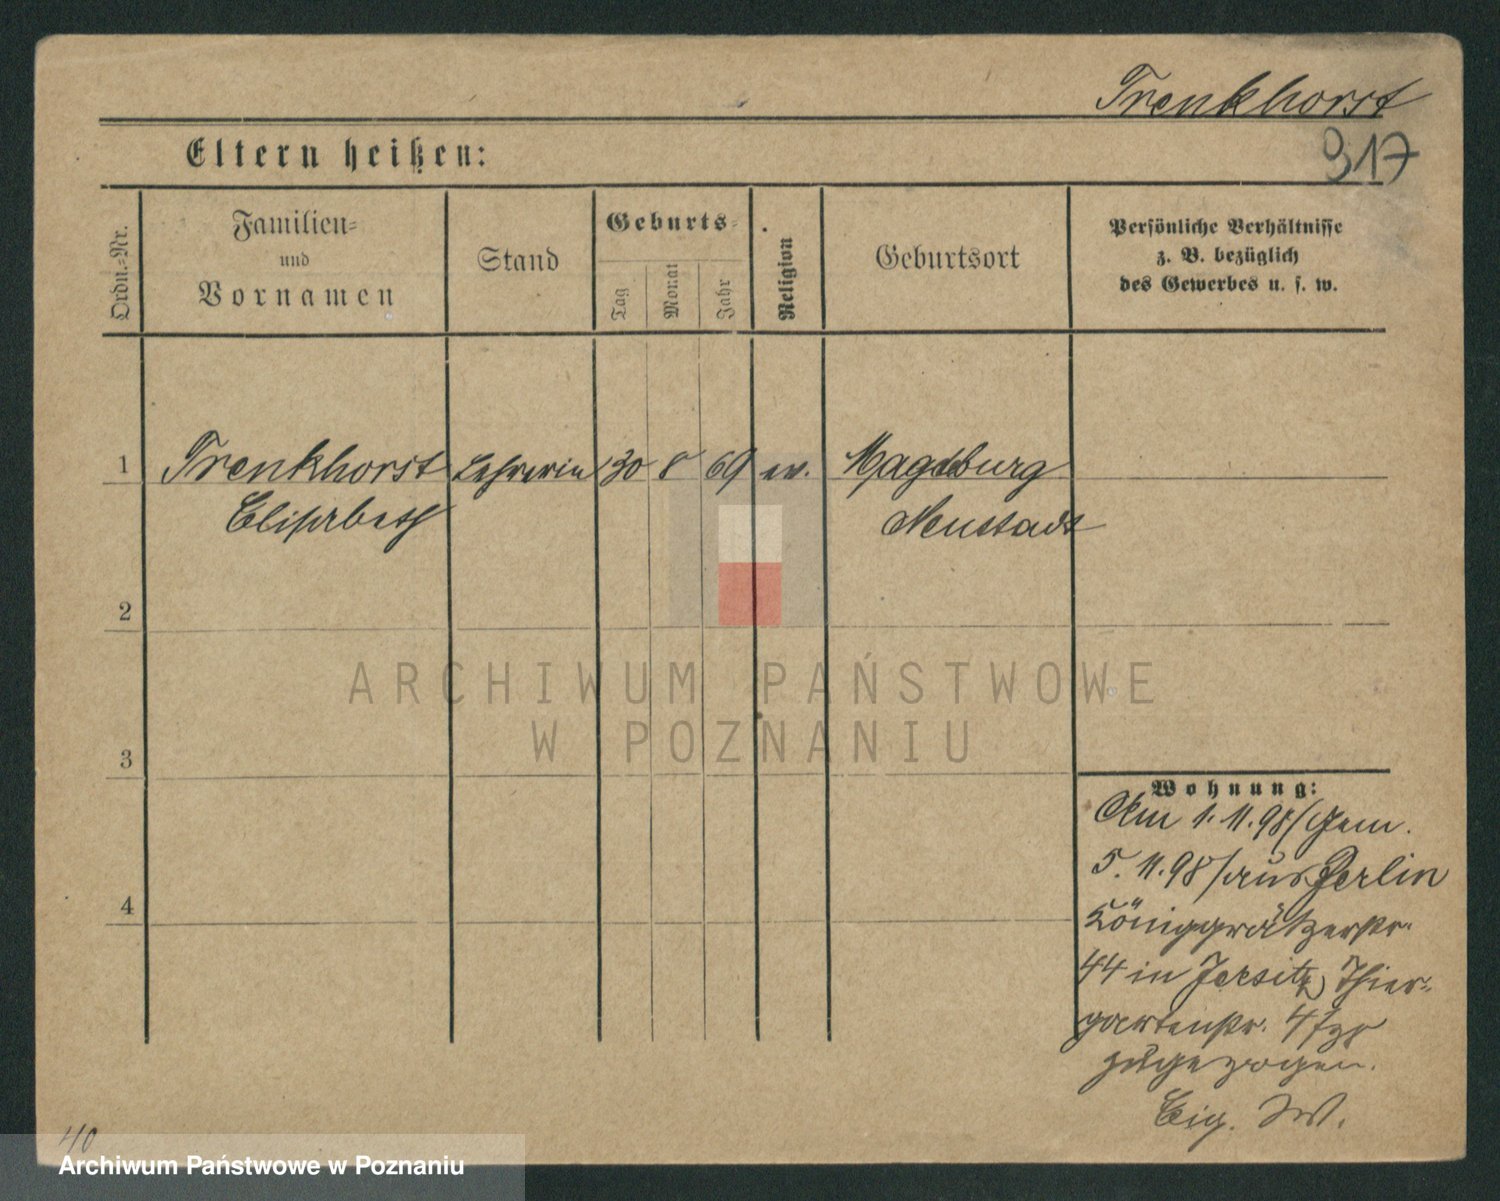 Trenkhorst
917
Eltern heißen:
Ordn.-Nr.
Familien-
und
Vornamen
Stand
Geburts-
Tag
Monat
Jahr
Religion
Geburtsort
Persönliche Verhältnisse
z. B. bezüglich
des Gewerbes u. s. w.
1
Trenkhorst Lehrerin 30 8 69 ev. Magdeburg
Elisabeth Neustadt
2
ARCHIWUM PAŃSTWOWE
W POZNANIU
3
Wohnung:
Am 1.11.98/Gem.
5.11.98/aus Berlin
Königgrätzerstr.
4
44 in Jersitz, Thier-
gartenstr. 4
zugezogen.
Eig. W.
40
Archiwum Państwowe w Poznaniu